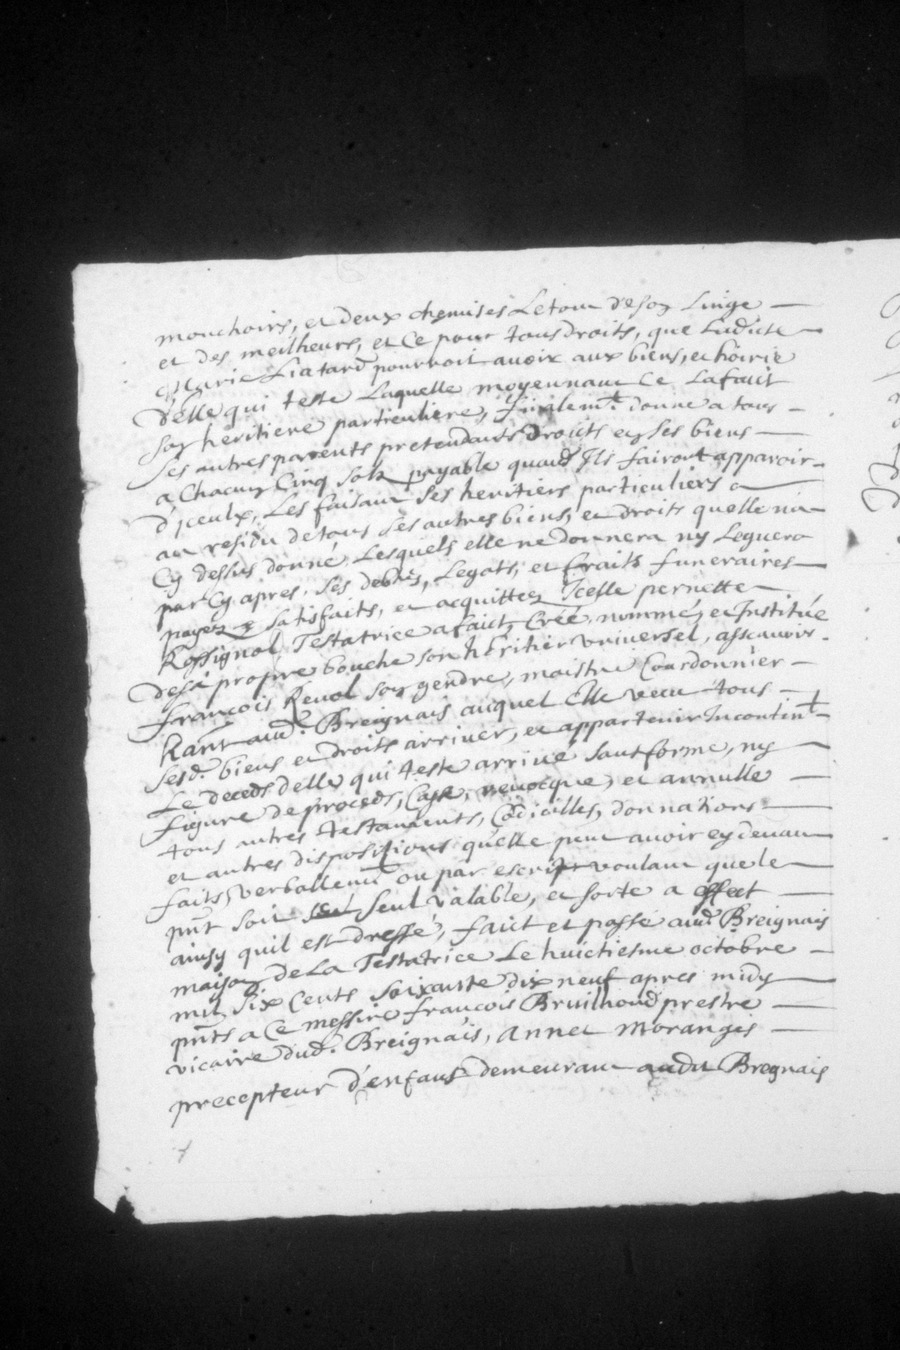 mouchoirs, et deux chemises Le tout de son Linge
et des meilheurs, et Ce pour tous droits, que Ladicte
Marie Liatard pourroit avoir aux biens, et hoirie
delle qui teste Laquelle moyennant Ce La faict
son heritiere particuliere, finalemt. donne a tous
ses autres parents pretendants droits en ses biens
a Chacun Cinq solz payable quand Ils fairont apparoir
d'iceulx, Les faisant ses heritiers particuliers
au residu de tous ses autres biens, et droits quelle na
Cy dessus donné, Lesquels elle ne donnera ny Leguera
par Cy apres, ses debtes, Legats, et fraits funeraires
payez & satisfaits, et acquittez Icelle pernette
Rossignol Testatrice a faict, Créé, nommé, et Institué
de sa propre bouche son héritier universel, asscavoir
françois Revol son gendre, maistre Courdonnier
hant. aud. Breignais auquel Elle veut tous
sesd. biens et droits arriver, et appartenir Incontint.
Le deceds delle qui teste arrivé sant forme, ny
figure de proceds, Casse, revocque, et annulle
tous autres testaments, Codicilles, donnations
et autres dispositions quelle peut avoir cy devant
faits, verballemt. ou par escript voulant que le
pnt soit seul valable, et sorte a effect
ainsy quil est dressé, faict et passé aud. Breignais
maison de La Testatrice Le huictiesme octobre
mil six Cents soixante dix neuf apres midy
pnts a Ce messire françois Bruilhoud prestre
vicaire dud. Breignais, annet Moranges
precepteur d'enfans demeurant audit Bregnais